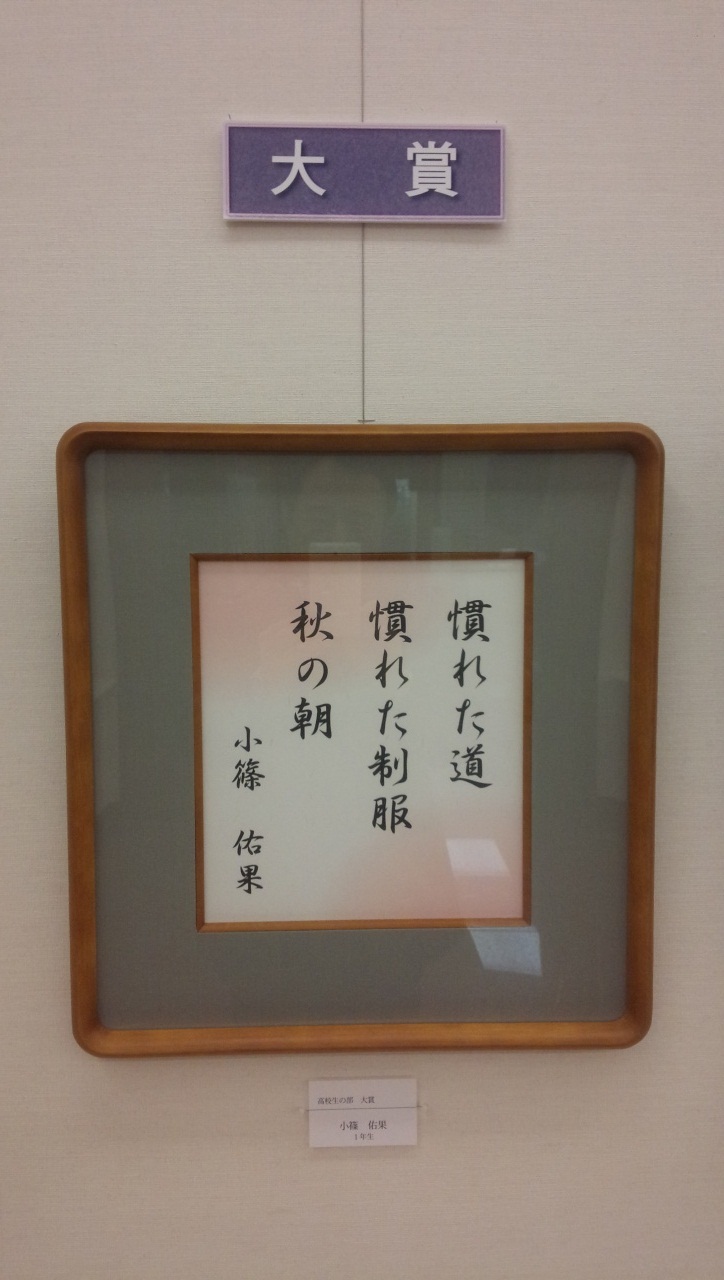 大 賞
慣れた道
慣れた制服
秋の朝
小篠 佑果
高校生の部 大賞
小篠 佑果
1年生